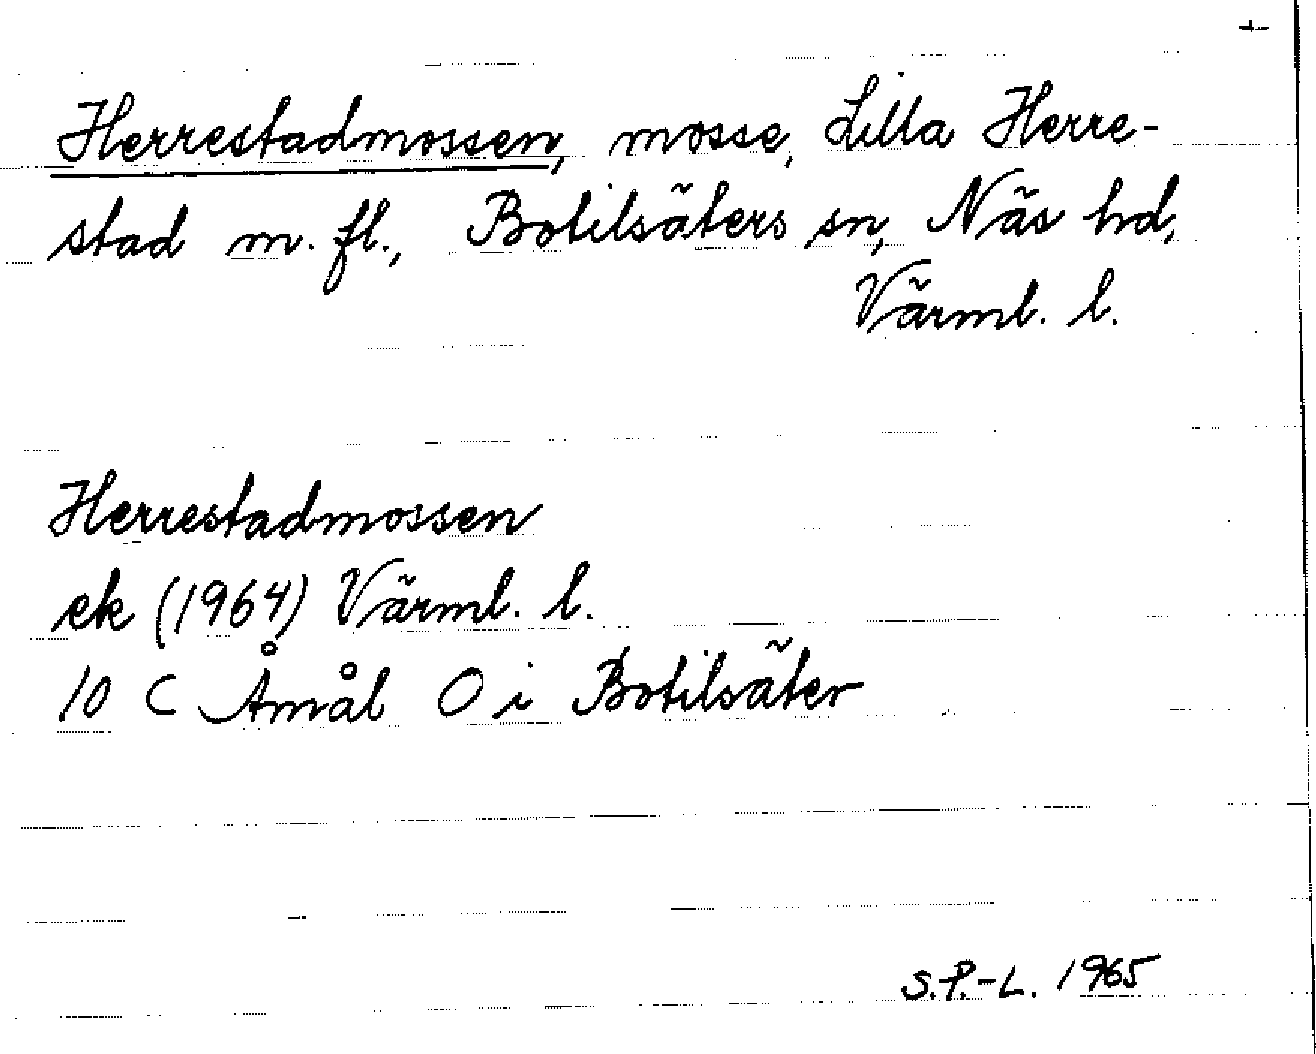 Herrestadmossen, mosse, Lilla Herre-
stad m. fl., Botilsäters sn, Näs hd,
Värml. l.
Herrestadmossen
ek (1964) Värml. l.
10 C Åmål O i Botilsäter
S.P.-L. 1965